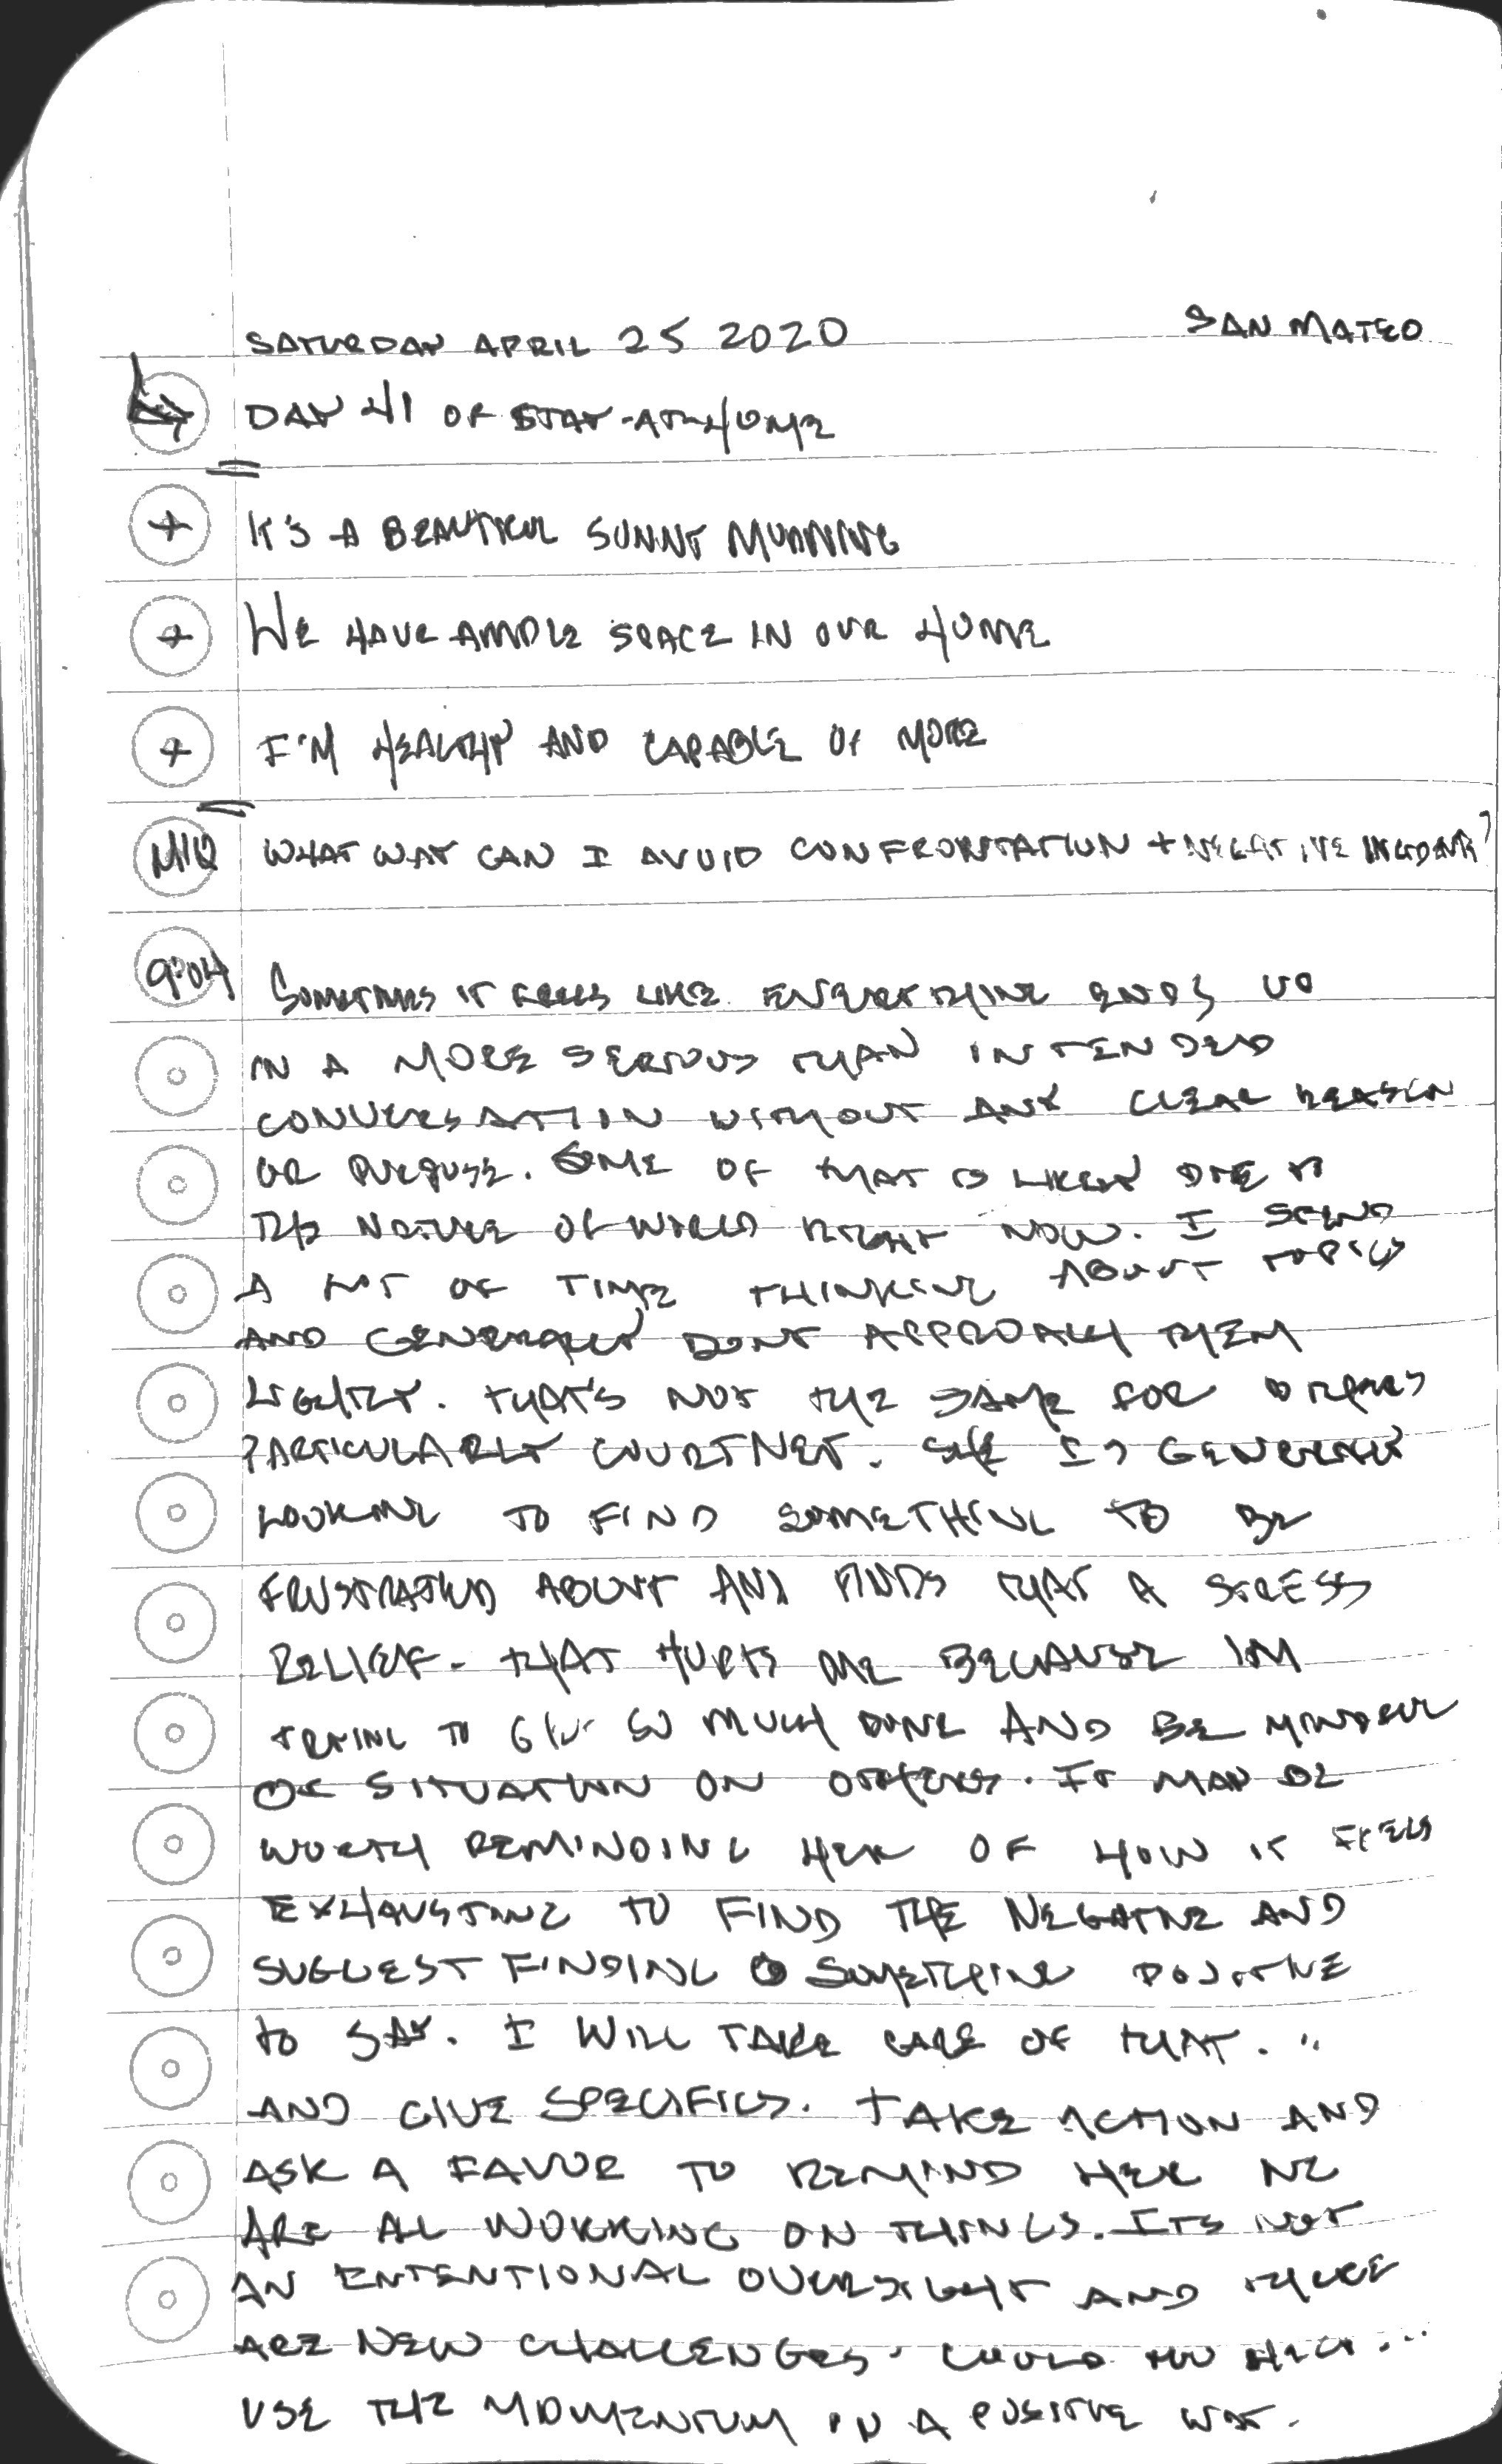 SATURDAY APRIL 25 2020 SAN MATEO
DAY 41 OF STAY-AT-HOME
+ IT'S A BEAUTIFUL SUNNY MORNING
+ WE HAVE AMPLE SPACE IN OUR HOME
+ I'M HEALTHY AND CAPABLE OF MORE
MIQ WHAT WAY CAN I AVOID CONFRONTATION + NEGATIVE INCIDENTS?
9:04 SOMETIMES IT FEELS LIKE EVERYTHING ENDS UP
IN A MORE SERIOUS THAN INTENDED
CONVERSATION WITHOUT ANY CLEAR REASON
OR PURPOSE. SOME OF THAT IS LIKELY DUE TO
THE NATURE OF WORLD RIGHT NOW. I SPEND
A LOT OF TIME THINKING ABOUT TOPICS
AND GENERALLY DON'T APPROACH THEM
LIGHTLY. THAT'S NOT THE SAME FOR OTHERS
PARTICULARLY COURTNEY. SHE IS GENERALLY
LOOKING TO FIND SOMETHING TO BE
FRUSTRATED ABOUT AND FINDS THAT A STRESS
RELIEF. THAT HURTS ME BECAUSE IM
TRYING TO SO MUCH DONE AND BE MINDFUL
OF SITUATION ON OTHERS. IT MAY BE
WORTH REMINDING HER OF HOW IT FEELS
EXHAUSTING TO FIND THE NEGATIVE AND
SUGGEST FINDING SOMETHING POSITIVE
TO SAY. I WILL TAKE CARE OF THAT. "
AND GIVE SPECIFICS. TAKE ACTION AND
ASK A FAVOR TO REMIND HER WE
ARE AL WORKING ON THINGS. ITS NOT
AN ENTENTIONAL OVERSIGHT AND THERE
ARE NEW CHALLENGES. COULD YOU HELP...
USE THE MOMENTUM IN A POSITIVE WAY.